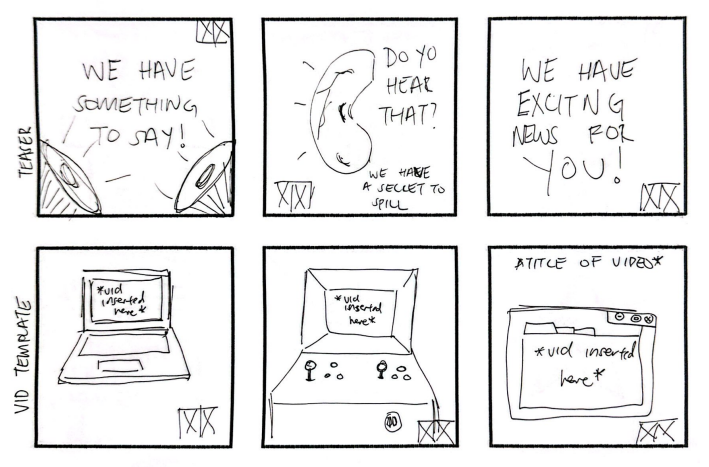 TEASER
WE HAVE
SOMETHING
TO SAY!
DO YO
HEAR
THAT?
WE HAVE
A SECRET TO
SPILL
WE HAVE
EXCITNG
NEWS FOR
YOU!
VID TEMPLATE
*vid
inserted
here*
*vid
inserted
here*
*TITLE OF VIDEO*
*vid inserted
here*